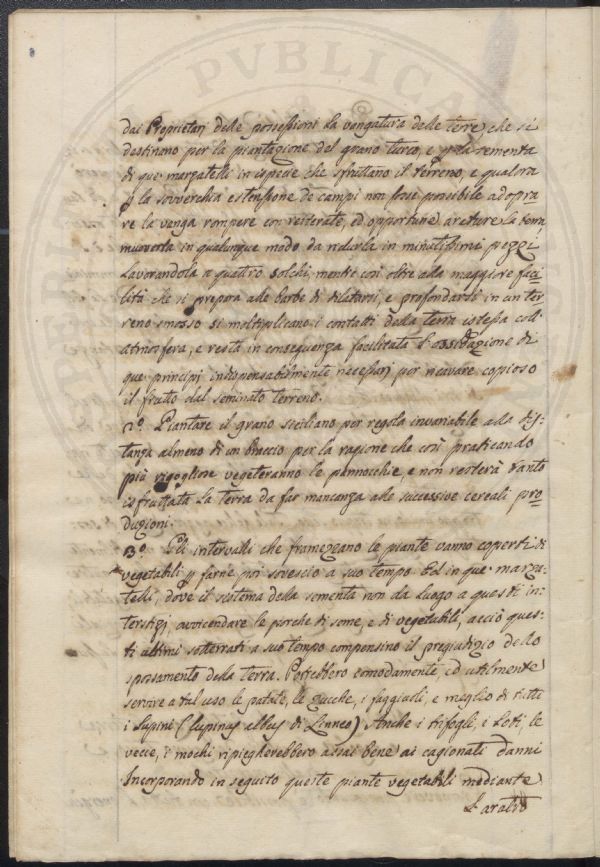 dai Proprietarj delle possessioni la vangatura delle terre, che si
destinano per la piantagione del grano turco, e p la sementa
di que' marzatelli in ispecie che sfruttano il terreno, e qualora
p la sovverchia estensione de campi non fosse possibile adopra
re la vanga rompere con reiterate, ed opportune arature la terra,
muoverla in qualunque modo da ridurla in minutissimi pezzi
lavorandola a quattro solchi, mentre così oltre alla maggiore faci
lità che si prepara alle barbe di dilatarsi, e profondarsi in un ter
reno smosso si moltiplicano i contatti della terra istessa coll'
atmosfera, e resta in conseguenza facilitata l'ossidazione di
que' principj indispensabilmente necessarj per ricavare copioso
il frutto dal seminato terreno.
2º. Piantare il grano siciliano per regola invariabile alla dis
tanza almeno di un braccio per la ragione che così praticando
più rigogliose vegeteranno le pannocchie, e non resterà tanto
isfruttata la terra da far mancanza alle successive cereali pro
duzioni.
3º. Gli intervalli che framezzano le piante vanno coperti di
vegetabili p farne poi sovescio a suo tempo. Ed in que' marza
telli, dove il sistema della sementa non dà luogo a questi in
terstizj, avvicendare le porche di seme, e di vegetabili, acciò ques
ti ultimi sotterrati a suo tempo compensino il pregiudizio dello
spossamento della terra. Potrebbero comodamente, ed utilmente
servire a tal uso le patate, le zucche, i faggiuoli, e meglio di tutti
i Lupini (lupinus albus di Linneo) Anche i trifogli, i Loti, le
vecce, i mochi ripiegherebbero assai bene ai cagionati danni
Incorporando in seguito queste piante vegetabili mediante
L'aratro
PVBLICA